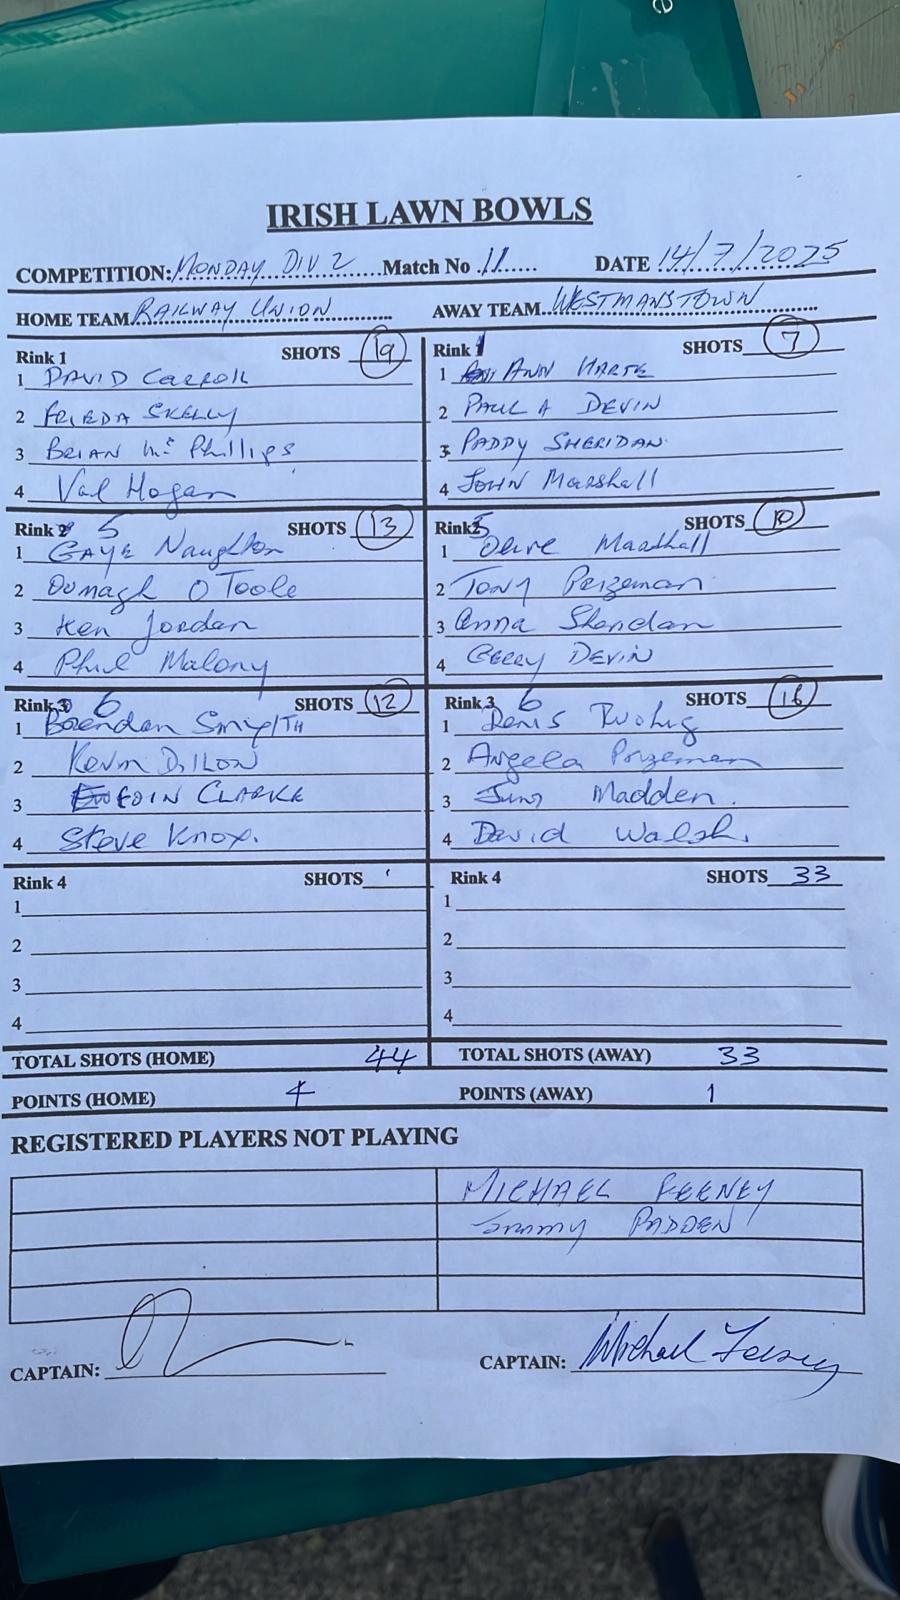 IRISH LAWN BOWLS
COMPETITION: MONDAY DIV 2 Match No 11 DATE 14/7/2025
HOME TEAM RAILWAY UNION AWAY TEAM WESTMANSTOWN
Rink 1 SHOTS 19
1 DAVID CARROLL
2 FRIEDA SKELLY
3 BRIAN Mc Phillips
4 Val Hogan
Rink 1 SHOTS 7
1 ANN HARTE
2 PAUL A DEVIN
3 PADDY SHERIDAN
4 JOHN Marshall
Rink 5 SHOTS 13
1 GAYE Naughton
2 Oonagh O Toole
3 Ken Jordan
4 Phil Malony
Rink 5 SHOTS 10
1 Olive Maashall
2 Tony Prizeman
3 Anna Sheridan
4 GERRY DEVIN
Rink 6 SHOTS 12
1 Brendan Smyth
2 Kevin DILLON
3 EOIN CLARKE
4 Steve Knox.
Rink 3 6 SHOTS 16
1 Denis Twohig
2 Angela Prizeman
3 Madden.
4 David Walsh.
Rink 4 SHOTS
1
2
3
4
Rink 4 SHOTS 33
1
2
3
4
TOTAL SHOTS (HOME) 44 TOTAL SHOTS (AWAY) 33
POINTS (HOME) 4 POINTS (AWAY) 1
REGISTERED PLAYERS NOT PLAYING
MICHAEL FEENEY
PADDEN
CAPTAIN: CAPTAIN: Michael Feeney